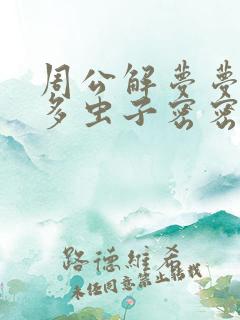 周公解梦梦
多虫子密密
路德维希
未经同意禁止转载